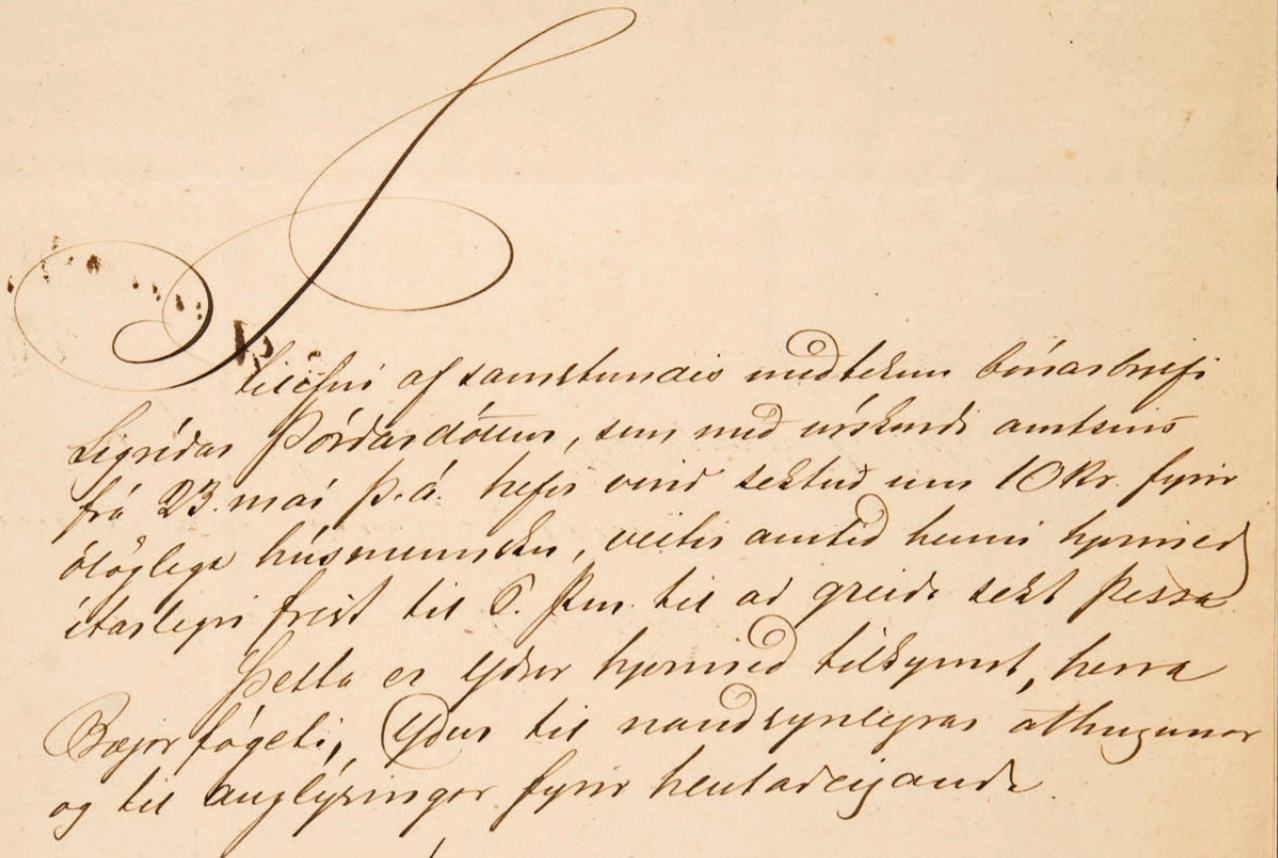 Í tilefni af samstundis meðteknu bónarbrjefi
Sigríðar Þórðardóttur, sem með úrskurði amtsins
frá 23. maí þ. á. hefir verið sektuð um 10 Kr. fyrir
ólöglega húsmennsku, veitir amtið henni hjermeð
ítarlegri frest til 6. til að greiða sekt þessa.
Þetta er Yður hjermeð tilkynnt, herra
Bæjarfógeti, Yður til nauðsynlegrar athugunar
og til auglýsingar fyrir hlutaðeiganda.